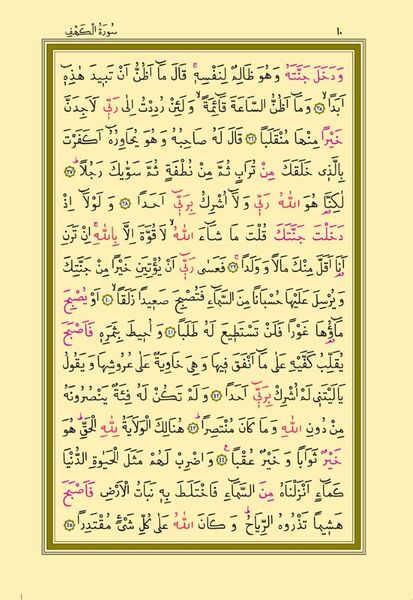 ١٠ سُورَةُ الْكَهْفِ
وَدَخَلَ جَنَّتَهُ وَهُوَ ظَالِمٌ لِنَفْسِهِۚ قَالَ مَٓا اَظُنُّ اَنْ تَبٖيدَ هٰذِهٖٓ
اَبَدًاۙ ﴿٣٥﴾ وَمَٓا اَظُنُّ السَّاعَةَ قَٓائِمَةًۙ وَلَئِنْ رُدِدْتُ اِلٰى رَبّٖى لَاَجِدَنَّ
خَيْرًا مِنْهَا مُنْقَلَبًا ﴿٣٦﴾ قَالَ لَهُ صَاحِبُهُ وَهُوَ يُحَاوِرُهُٓ اَكَفَرْتَ
بِالَّذٖى خَلَقَكَ مِنْ تُرَابٍ ثُمَّ مِنْ نُطْفَةٍ ثُمَّ سَوّٰيكَ رَجُلًاؕ ﴿٣٧﴾
لٰكِنَّا۬ هُوَ اللّٰهُ رَبّٖى وَلَٓا اُشْرِكُ بِرَبّٖٓى اَحَدًا ﴿٣٨﴾ وَلَوْلَٓا اِذْ
دَخَلْتَ جَنَّتَكَ قُلْتَ مَا شَٓاءَ اللّٰهُۙ لَا قُوَّةَ اِلَّا بِاللّٰهِۚ اِنْ تَرَنِ
اَنَا۬ اَقَلَّ مِنْكَ مَالًا وَوَلَدًاۚ ﴿٣٩﴾ فَعَسٰى رَبّٖٓى اَنْ يُؤْتِيَنِ خَيْرًا مِنْ جَنَّتِكَ
وَيُرْسِلَ عَلَيْهَا حُسْبَانًا مِنَ السَّمَٓاءِ فَتُصْبِحَ صَعٖيدًا زَلَقًاۙ ﴿٤٠﴾ اَوْ يُصْبِحَ
مَٓاؤُ۬هَا غَوْرًا فَلَنْ تَسْتَطٖيعَ لَهُ طَلَبًا ﴿٤١﴾ وَاُحٖيطَ بِثَمَرِهٖ فَاَصْبَحَ
يُقَلِّبُ كَفَّيْهِ عَلٰى مَٓا اَنْفَقَ فٖيهَا وَهِىَ خَاوِيَةٌ عَلٰى عُرُوشِهَا وَيَقُولُ
يَا لَيْتَنٖى لَمْ اُشْرِكْ بِرَبّٖٓى اَحَدًا ﴿٤٢﴾ وَلَمْ تَكُنْ لَهُ فِئَةٌ يَنْصُرُونَهُ
مِنْ دُونِ اللّٰهِ وَمَا كَانَ مُنْتَصِرًاؕ ﴿٤٣﴾ هُنَالِكَ الْوَلَايَةُ لِلّٰهِ الْحَقِّؕ هُوَ
خَيْرٌ ثَوَابًا وَخَيْرٌ عُقْبًا۟ ﴿٤٤﴾ وَاضْرِبْ لَهُمْ مَثَلَ الْحَيٰوةِ الدُّنْيَا
كَمَٓاءٍ اَنْزَلْنَاهُ مِنَ السَّمَٓاءِ فَاخْتَلَطَ بِهٖ نَبَاتُ الْاَرْضِ فَاَصْبَحَ
هَشٖيمًا تَذْرُوهُ الرِّيَاحُؕ وَكَانَ اللّٰهُ عَلٰى كُلِّ شَىْءٍ مُقْتَدِرًا ﴿٤٥﴾